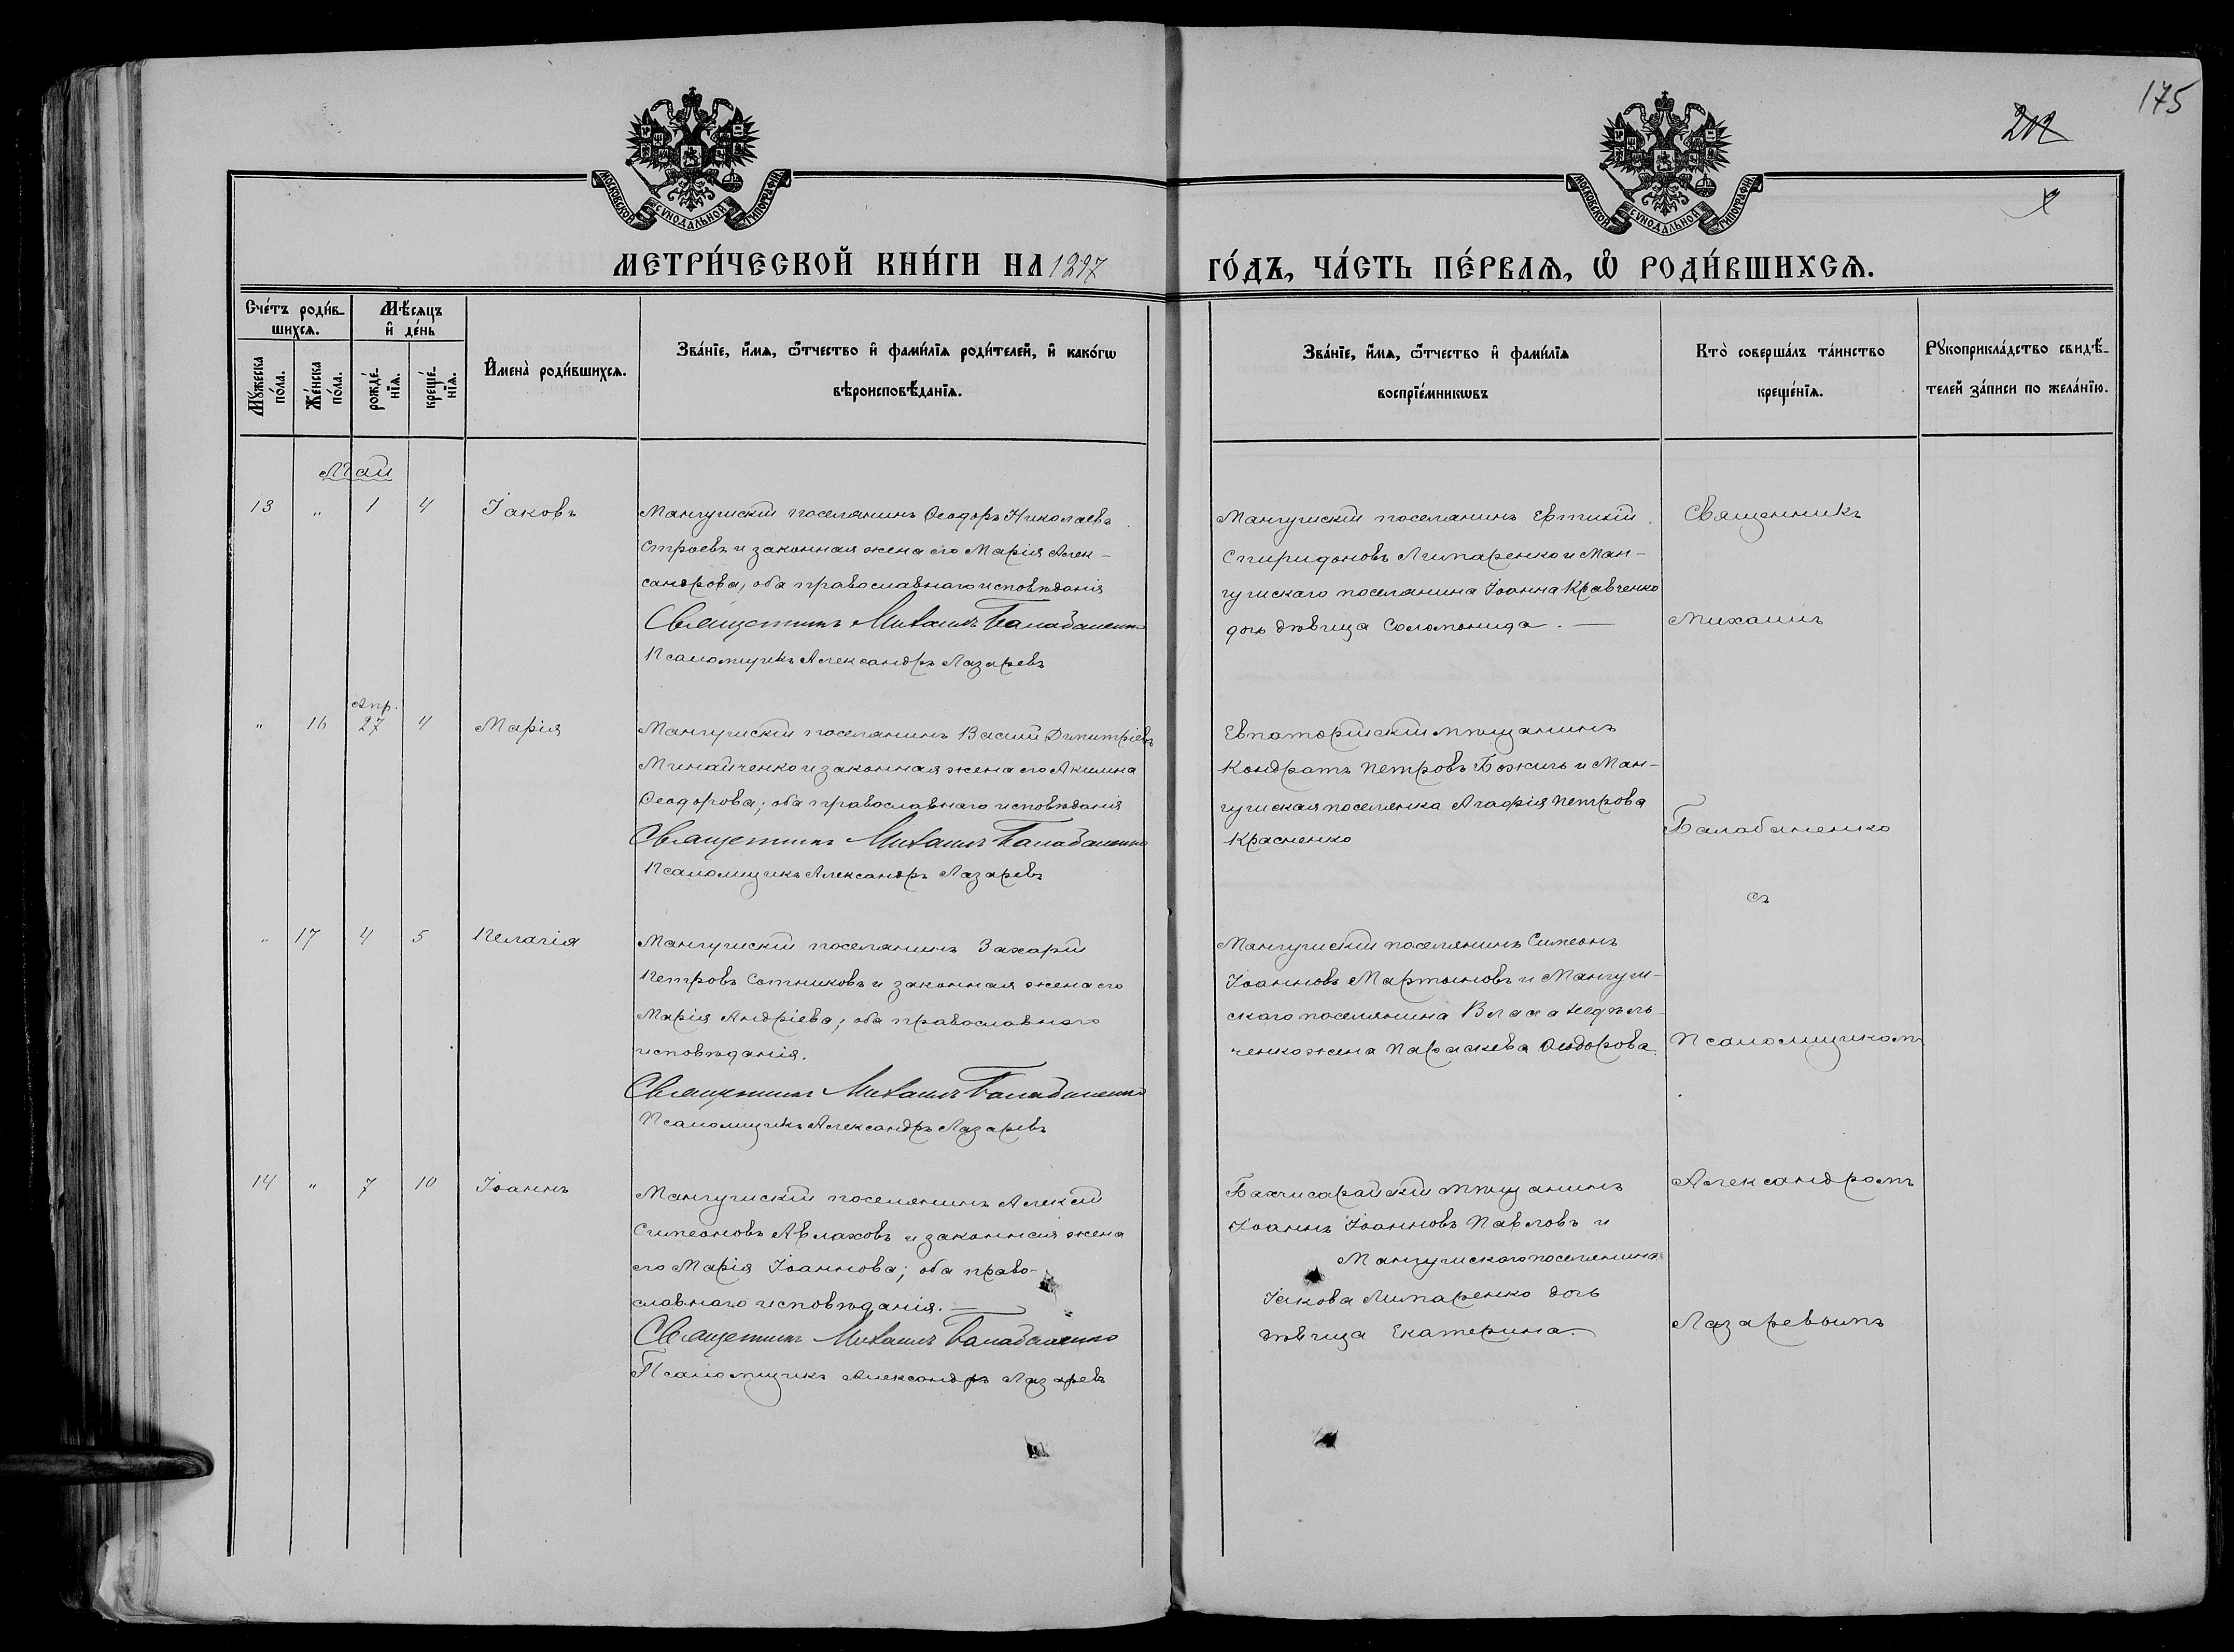 175
212
МОСКОВСКОЙ СѴНОДАЛЬНОЙ ТИПОГРАФІИ
МОСКОВСКОЙ СѴНОДАЛЬНОЙ ТИПОГРАФІИ
МЕТРИ́ЧЕСКОЙ КНИ́ГИ НА 1897
ГО́ДЪ, ЧА́СТЬ ПЕ́РВАѦ, Ѽ РОДИ́ВШИХСѦ.
Сче́тъ роди́в-
шихсѧ.
Мѣ́сѧцъ
и҆ де́нь
Мꙋ́жеска
по́ла.
Же́нска
по́ла.
рожде́-
нїѧ.
креще́-
нїѧ.
И҆мена̀ роди́вшихсѧ.
Зва́нїе, и҆́мѧ, ѻ҆́тчество и҆ фами́лїѧ роди́телей, и҆ како́гѡ
вѣроисповѣ́данїѧ.
Зва́нїе, и҆́мѧ, ѻ҆́тчество и҆ фами́лїѧ
воспрїе́мникѡвъ
Кто̀ соверша́лъ та́инство
креще́нїѧ.
Рꙋкоприкла́дство свидѣ́-
телей за́писи по жела́нїю.
Май
13 " 1 4 Іаковъ
Мангушскій поселянинъ Ѳеодоръ Николаевъ
Строевъ и законная жена его Марія Алек-
сандрова, оба православнаго исповѣданія
Священникъ Михаилъ Балабаненко
Псаломщикъ Александръ Лазаревъ
Мангушскій поселянинъ Евтихій
Спиридоновъ Литаренко и Ман-
гушскаго поселянина Іоанна Кравченко
дочь дѣвица Соломонида. —
Священникъ
Михаилъ
Апр.
" 16 27 4 Марія
Мангушскій поселянинъ Василій Димитріевъ
Минайченко и законная жена его Акилина
Ѳеодорова; оба православнаго исповѣданія
Священникъ Михаилъ Балабаненко
Псаломщикъ Александръ Лазаревъ
Евпаторійскій мѣщанинъ
Кондратъ Петровъ Божичъ и Ман-
гушская поселянка Агафія Петрова
Красненко
Балабаненко
съ
" 17 4 5 Пелагія
Мангушскій поселянинъ Захарій
Петровъ Сотниковъ и законная жена его
Марія Андріева; оба православнаго
исповѣданія.
Священникъ Михаилъ Балабаненко
Псаломщикъ Александръ Лазаревъ
Мангушскій поселянинъ Симеонъ
Іоанновъ Мартыновъ и Мангуш-
скаго поселянина Власа Недѣль-
ченко жена Параскева Ѳеодорова.
Псаломщикомъ
14 " 7 10 Іоаннъ
Мангушскій поселянинъ Алексій
Симеоновъ Авлаховъ и законная жена
его Марія Іоаннова; оба право-
славнаго исповѣданія. —
Священникъ Михаилъ Балабаненко
Псаломщикъ Александръ Лазаревъ
Бахчисарайскій мѣщанинъ
Іоаннъ Іоанновъ Павловъ и
Мангушскаго поселянина
Іакова Литаренко дочь
дѣвица Екатерина.
Александромъ
Лазаревымъ